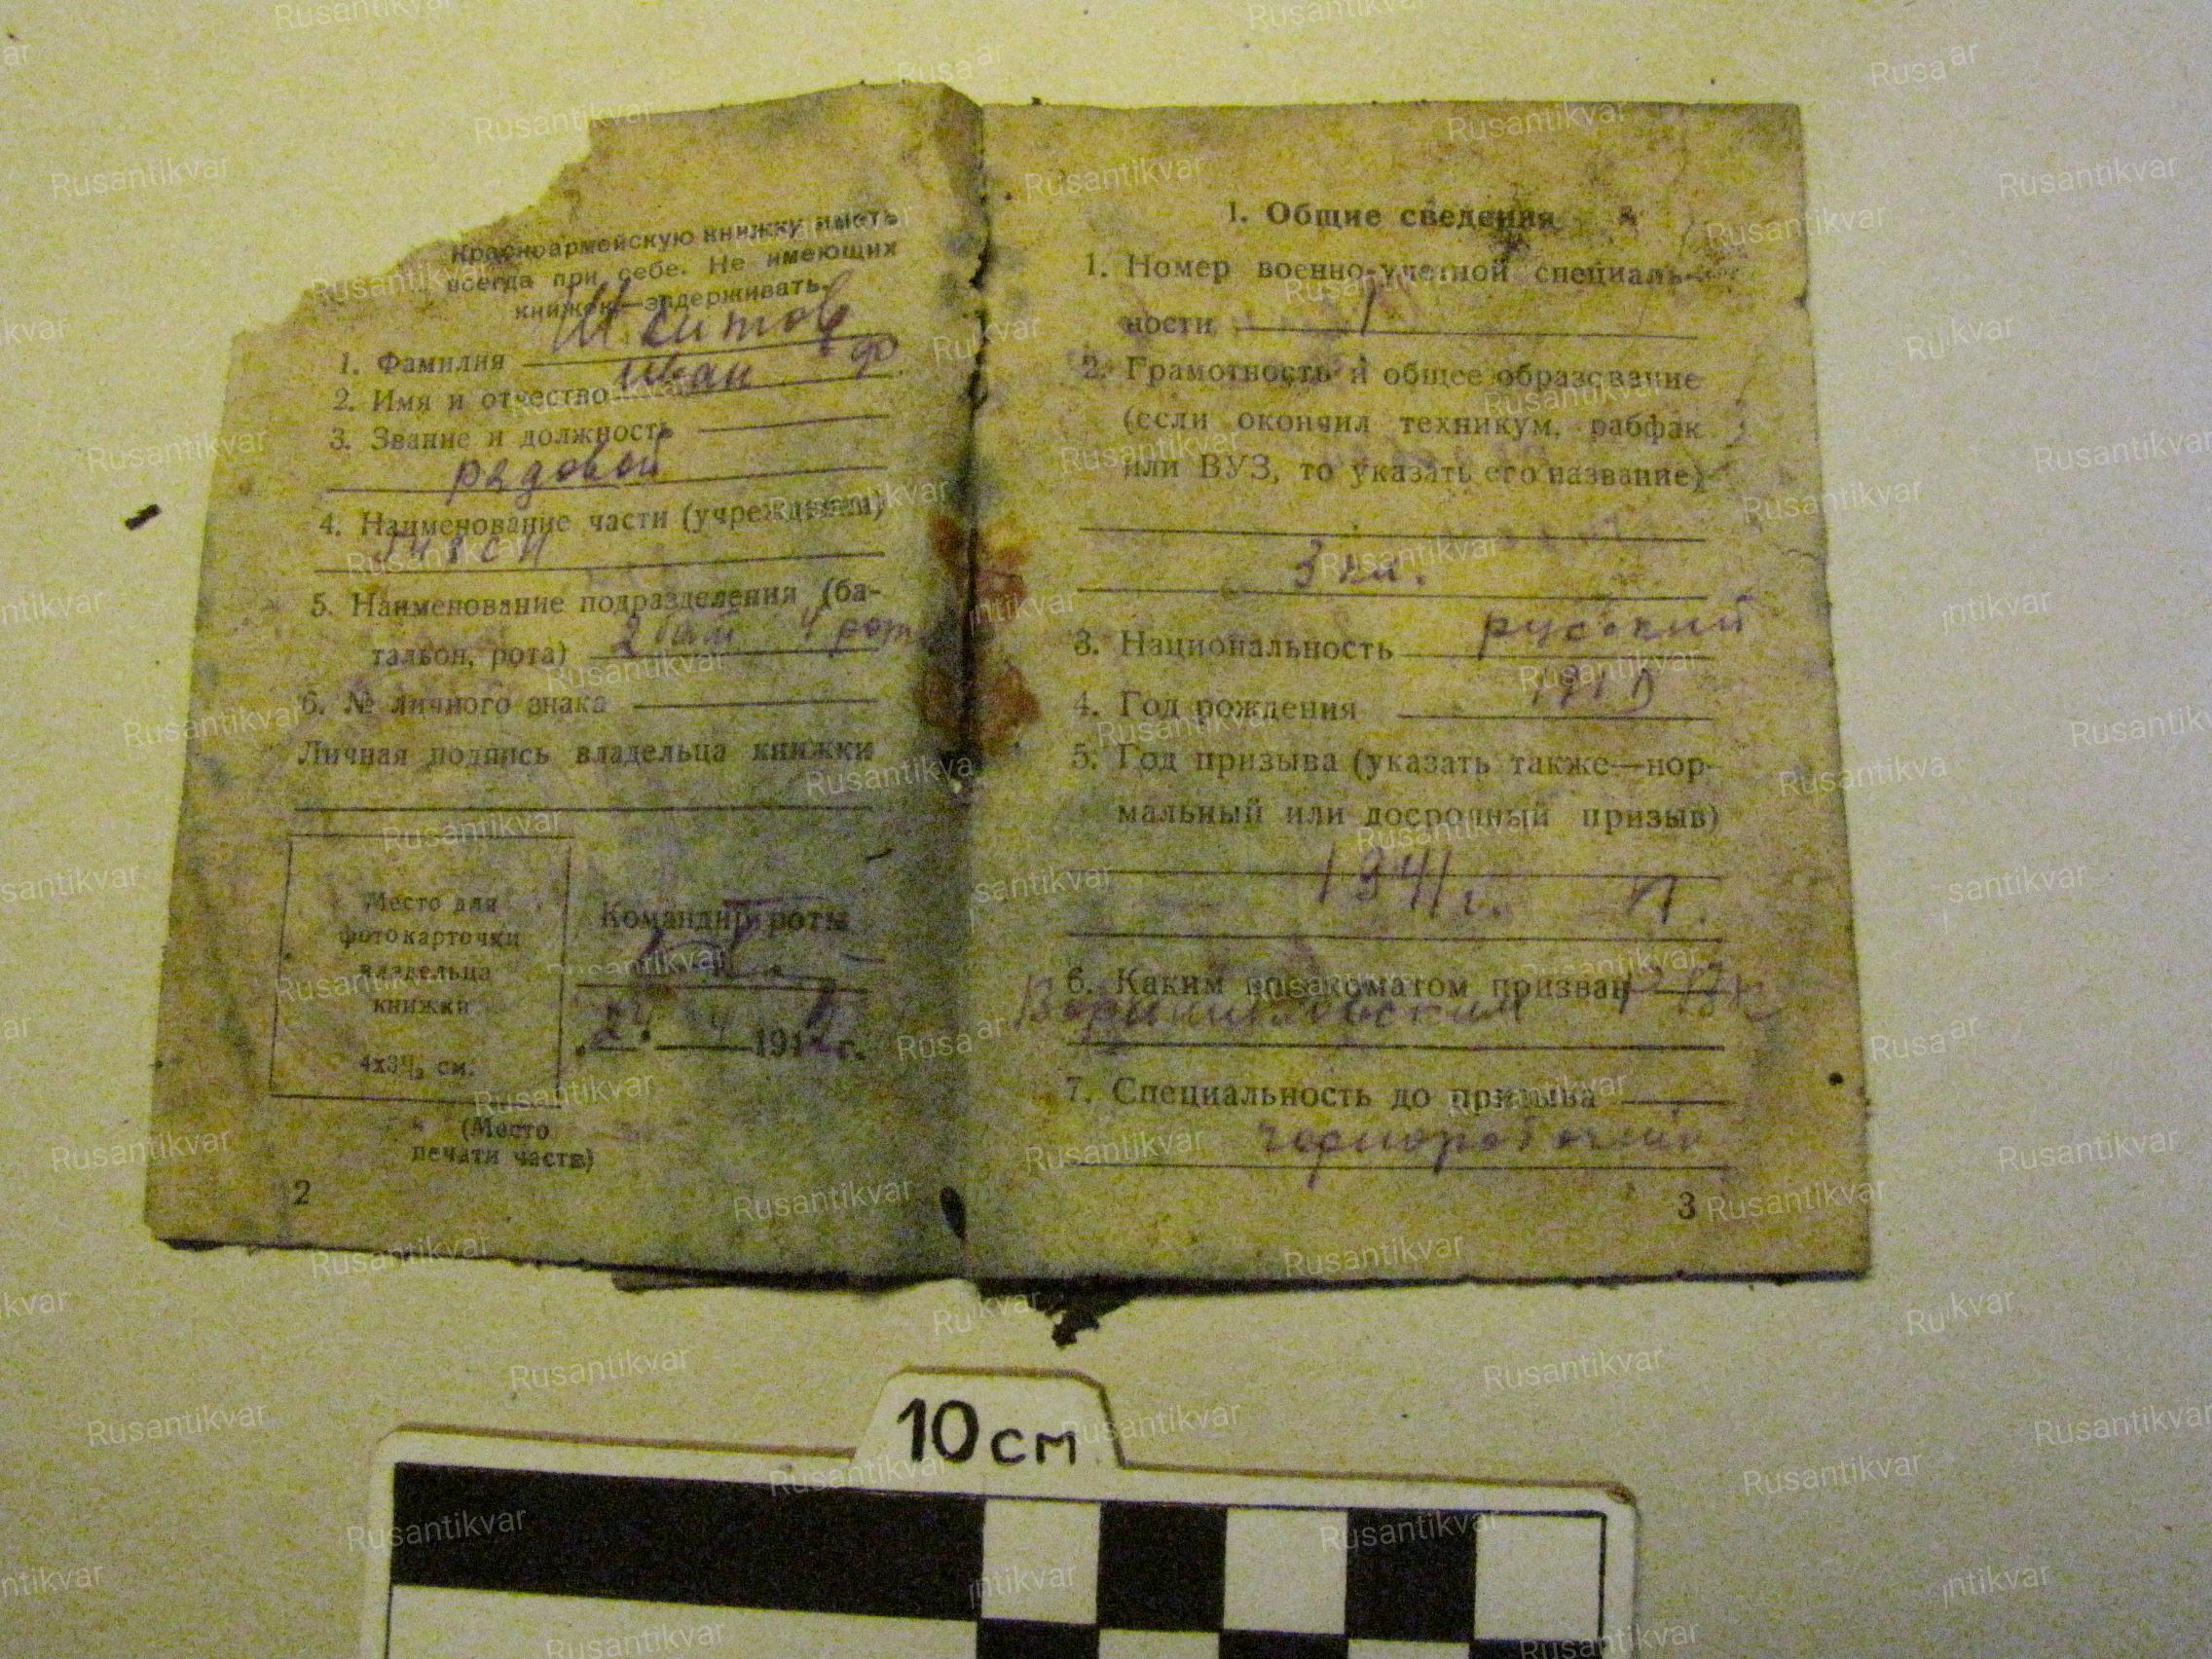 Красноармейскую книжку иметь
всегда при себе. Не имеющих
книжек—задерживать.
1. Фамилия
2. Имя и отчество Иван Ф
3. Звание и должность
рядовой
4. Наименование части (учреждения)
5. Наименование подразделения (ба-
тальон, рота) 2 бат 4 рот
6. № личного знака
Личная подпись владельца книжки
Место для
фотокарточки
владельца
книжки
4х3½ см.
Командир роты
24 4 1942 г.
(Место
печати части)
2
1. Общие сведения
1. Номер военно-учетной специаль-
ности 1
2. Грамотность и общее образование
(если окончил техникум, рабфак
или ВУЗ, то указать его название)
3 кл.
3. Национальность русский
4. Год рождения
5. Год призыва (указать также—нор-
мальный или досрочный призыв)
1941 г. Н.
6. Каким военкоматом призван
Ворошиловским
7. Специальность до призыва
чернорабочий
3
10 см
Rusantikvar